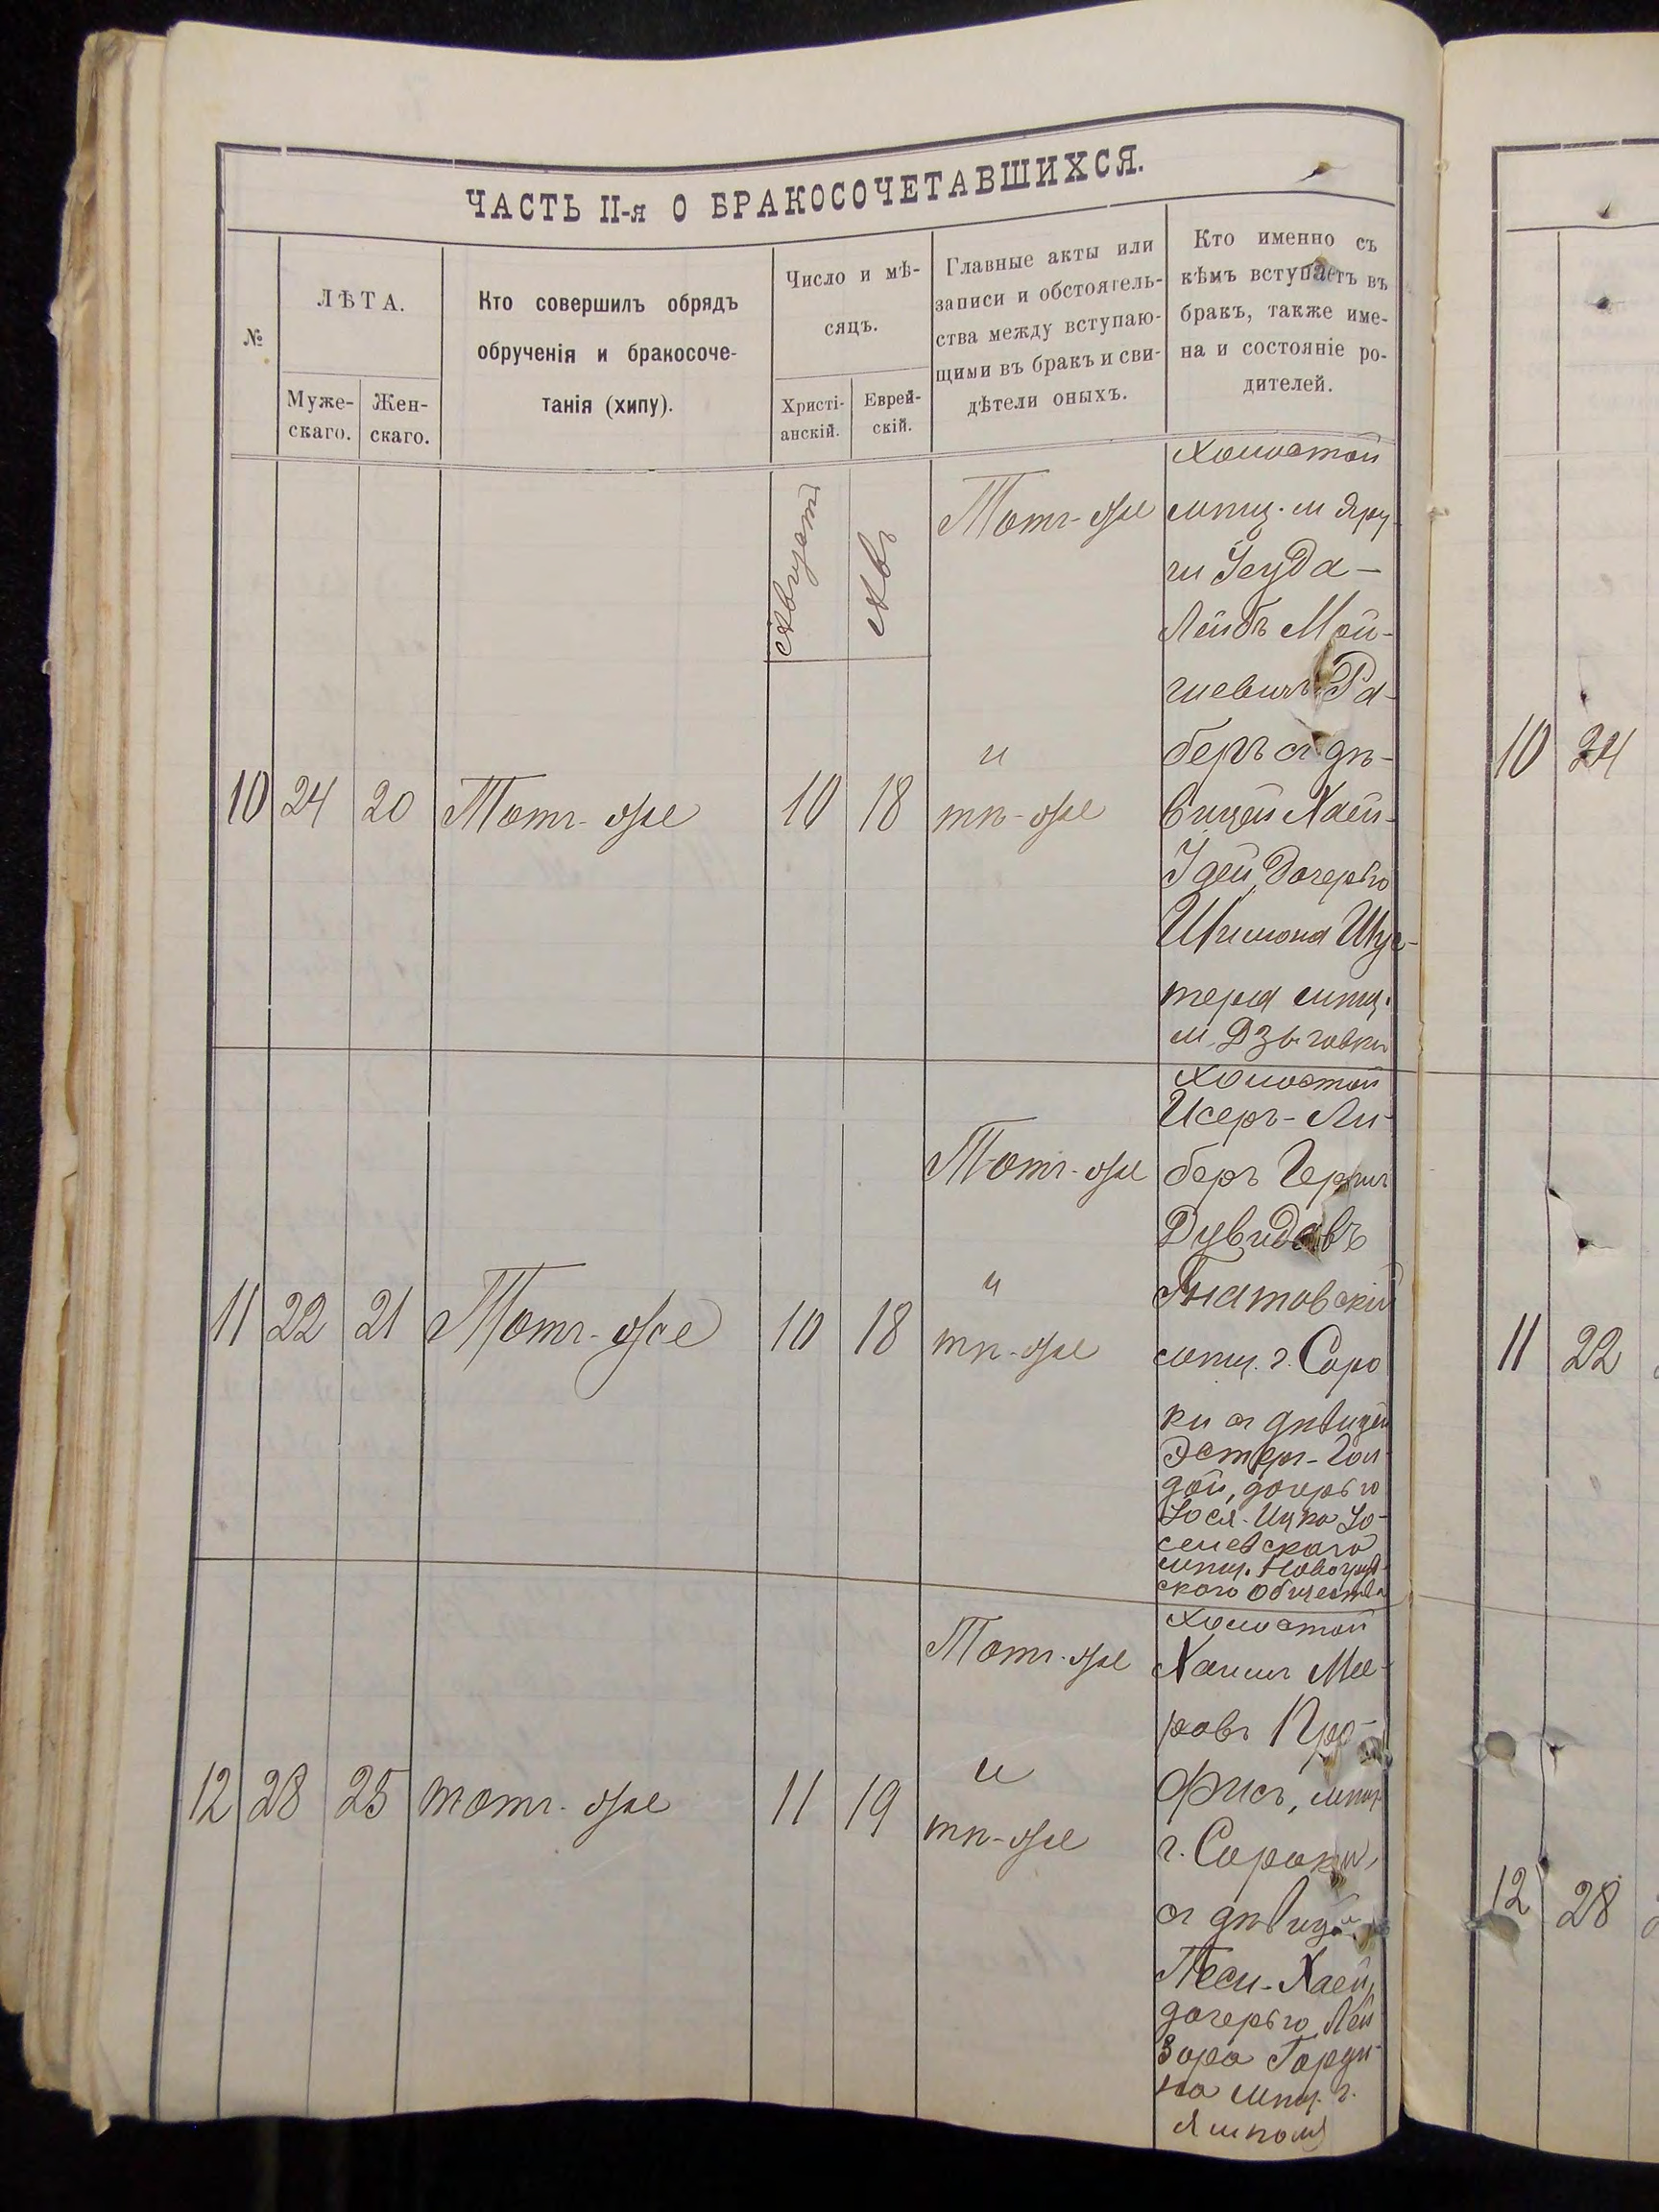 ЧАСТЬ II-я О БРАКОСОЧЕТАВШИХСЯ.
№
ЛѢТА.
Муже-
скаго.
Жен-
скаго.
Кто совершилъ обрядъ
обрученія и бракосоче-
танія (хипу).
Число и мѣ-
сяцъ.
Христі-
анскій.
Еврей-
скій.
Главные акты или
записи и обстоятель-
ства между вступаю-
щими въ бракъ и сви-
дѣтели оныхъ.
Кто именно съ
кѣмъ вступаетъ въ
бракъ, также име-
на и состояніе ро-
дителей.
Августъ
Авъ
10 24 20 Тотъ-же 10 18
Тотъ-же
и
тѣ-же
холостой
мѣщ. м Яру
ги Іеуда-
Лейбъ Мой-
шевичъ Ра-
беръ съ дѣ-
вицей Хаей-
Идей, дочерью
Шимона Шус-
тера мѣщ.
м. Дзыговки
11 22 21 Тотъ-же 10 18
Тотъ-же
и
тѣ-же
холостой
Исеръ-Ли-
беръ Гершъ
Дувидовъ
Гнатовскій
мѣщ. г. Соро
ки съ дѣвицей
Эстеръ-Гол-
дой, дочерью
Іося-Ицка Іо-
селевскаго
мѣщ.
скаго общества
12 28 25 тотъ-же 11 19
Тотъ-же
и
тѣ-же
холостой
Хаимъ Мее-
ровъ Про-
фисъ, мѣщ.
г. Сороки,
съ дѣвицей
Песи-Хаей,
дочерью Лей
зора Горди-
на мѣщ. г.
Ямполя
10 24
11 22
12 28